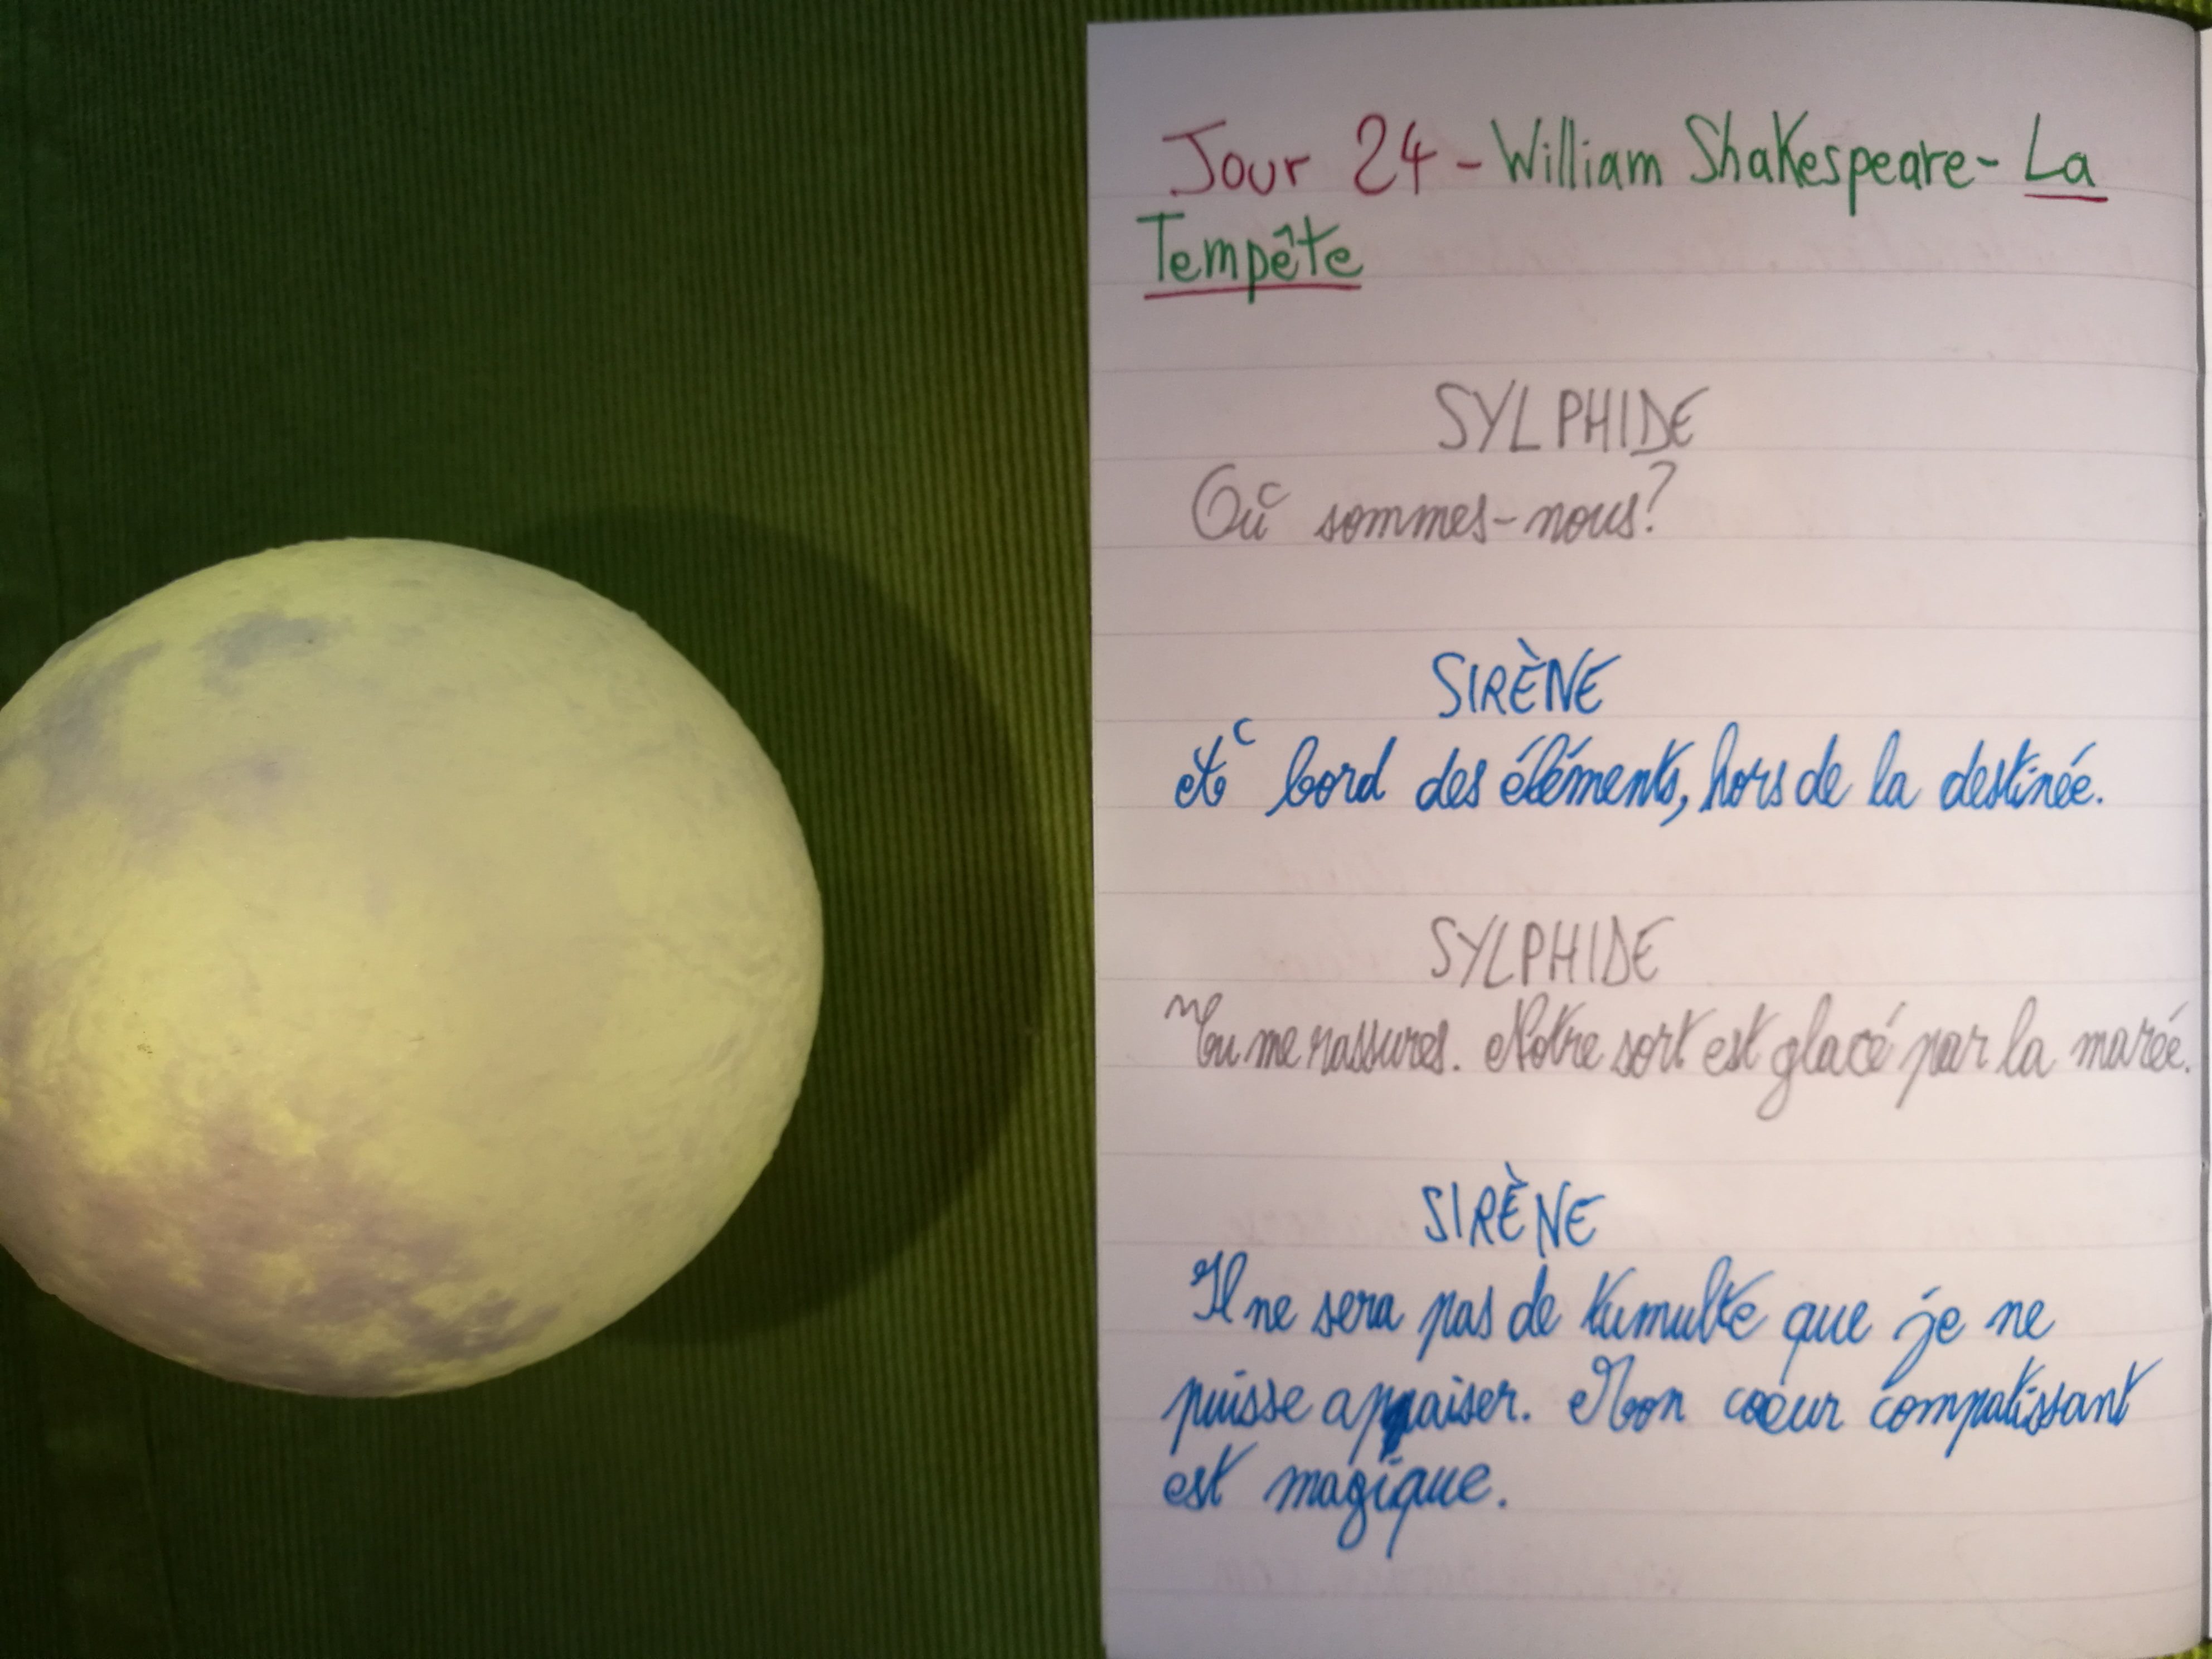 Jour 24 - William Shakespeare - La
Tempête
SYLPHIDE
Où sommes-nous?
SIRÈNE
À bord des éléments, hors de la destinée.
SYLPHIDE
Tu me rassures. Notre sort est glacé par la marée.
SIRÈNE
Il ne sera pas de tumulte que je ne
puisse apaiser. Mon coeur compatissant
est magique.